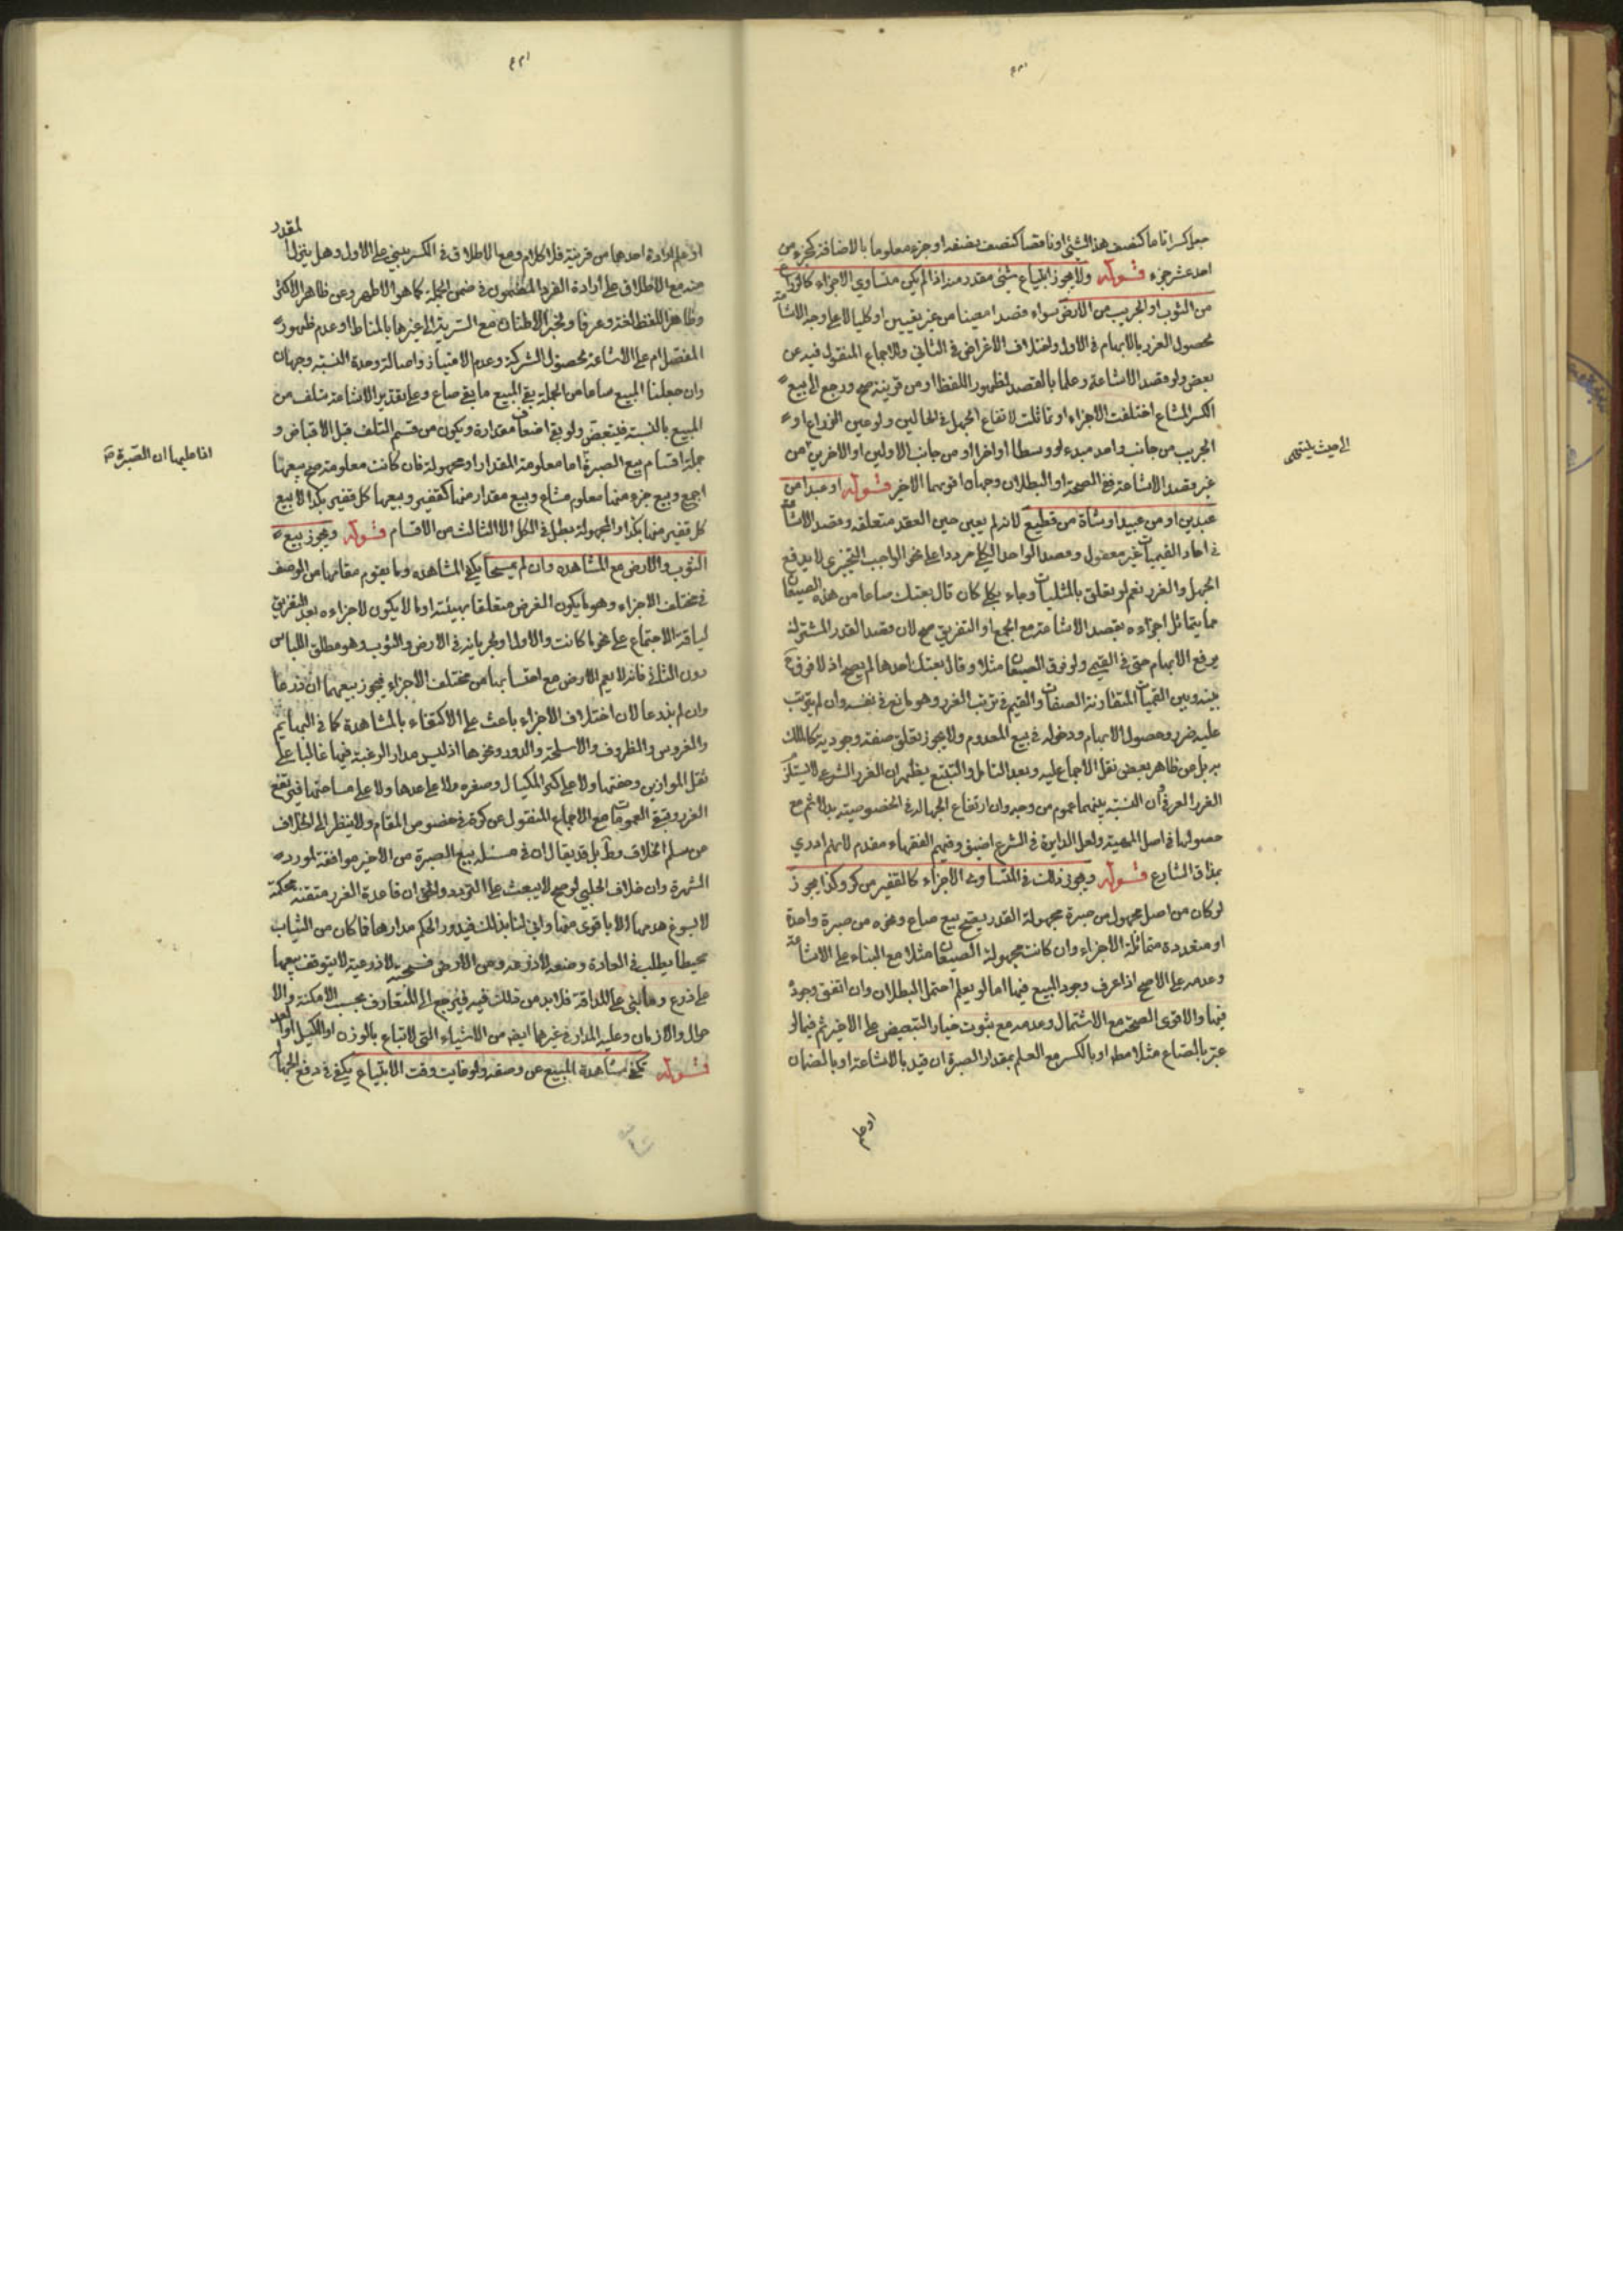 جعل كسرا تاما كنصف هذا الشئ او ناقصا كنصف نصفه او جزء معلوما بالاضافة كجزء من
احد عشر جزء قوله ولا يجوز ابتياع شئ مقدر منه اذا لم يكن متساوي الاجزاء كالذراع
من الثوب او الجريب من الارض سواء قصدا معينا من غير تعيين او كليا لا على وجه الاشاعة
لحصول الغرر بالابهام في الاول واختلاف الاغراض في الثاني والاجماع المنقول فيه عن
بعض ولو قصد الاشاعة وعلما بالقصد لظهور اللفظ او من قرينة صح ورجع الى بيع
الكسر المشاع اختلفت الاجزاء او تماثلت لارتفاع الجهل في الحالين ولو عين الذراع او
الجريب من جانب واحد مبدء او وسطا او اخرا او من جانب الاولين او الاخرين من
الى حيث ينتهي
غير قصد الاشاعة ففي الصحة او البطلان وجهان اقويهما الاخير قوله او عبدا من
عبدين او من عبيد او شاة من قطيع لانه لم يعين حين العقد متعلقه وقصد الاشاعة
في احاد القيميات غير معقول وقصد الواحد الكلي مرددا على نحو الواجب التخيري لا يدفع
الجهل والغرر نعم لو تعلق بالمثليات وجاء بكلي كان قال بعتك صاعا من هذه الصيعان
مما يتماثل اجزاءه بقصد الاشاعة مع الجمع او التفريق صح لان قصد القدر المشترك
يرفع الابهام حتى في القيمي ولو فرق الصيعان مثلا وقال بعتك احدها لم يصح اذ لا فرق
بينه وبين القيميات المتقاربة الصفات والقيم في ترتب الغرر وهو مانع في نفسه وان لم يترتب
عليه ضرر وحصول الابهام ودخوله في بيع المعدوم ولا يجوز تعلق صفة وجودية كالملك
به بل من ظاهر بعض نقل الاجماع عليه وبعد التامل والتتبع يظهر ان الغرر الشرعي لا يستلزم
الغرر العرفي وان النسبة بينهما عموم من وجه وان ارتفاع الجهالة في الخصوصية بدلا ثم مع
حصولها في اصل المهية ولعل الدايرة في الشرع اضيق وفهم الفقهاء مقدم لانهم ادري
بمذاق الشارع قوله ويجوز ذلك في المتساوي الاجزاء كالقفيز من كر وكذا يجوز
لو كان من اصل مجهول من صبرة مجهولة القدر فيصح بيع صاع ونحوه من صبرة واحدة
او متعددة متماثلة الاجزاء وان كانت مجهولة الصيعان مثلا مع البناء على الاشاعة
وعدمه على الاصح اذا عرف وجود المبيع فيها اما لو يعلم احتمل البطلان وان اتفق وجوده
فيها والاقوى الصحة مع الاشتمال وعدمه مع ثبوت خيار التبعيض على الاخير ثم فيما لو
عبر بالصاع مثلا مط او بالكسر مع العلم بمقدار الصبرة ان قيد بالاشاعة او بالضمان
او علم
او علم ارادة احدهما من قرينة فلا كلام ومع الاطلاق في الكسر يبني على الاول وهل ينزل المقدر
منه مع الاطلاق على ارادة الفرد المضمون في ضمن الجملة كما هو الاظهر وعن ظاهر الاكثر
وظاهر اللفظ لغة وعرفا ولخبر الاطنان مع التسرية الى غيرها بالمناط او عدم ظهور
المفصل ام على الاشاعة لحصول الشركة وعدم الامتياز واصالة وحدة النسبة وجهان
وان جعلنا المبيع صاعا من الجملة بقي المبيع ما بقي صاع وعلى تقدير الاشاعة تتلف من
المبيع بالنسبة فيتبعض ولو بقي اضعاف مقداره ويكون من قسم التلف قبل الاقباض و
جملة اقسام بيع الصبرة اما معلومة المقدار او مجهولة فان كانت معلومة صح بيعها
اذا علما ان الصبرة
اجمع وبيع جزء منها معلوم مشاع وبيع مقدار منها كقفيز وبيعها كل قفيز بكذا لا بيع
كل قفيز منها بكذا والمجهولة يبطل في الكل الا الثالث من الاقسام قوله ويجوز بيع
الثوب والارض مع المشاهدة وان لم يمسحا يكفي المشاهده وما يقوم مقامها من الوصف
في مختلف الاجزاء وهو ما يكون الغرض متعلقا بهيئته او ما لا يكون لاجزاءه بعد التفريق
لياقة الاجتماع على نحو ما كانت والاول ولجريانه في الارض والثوب وهو مطلق اللباس
دون الثاني فانه لا يعم الارض مع احتسابها من مختلف الاجزاء فيجوز بيعهما ان ذرعا
وان لم يذرعا لان اختلاف الاجزاء باعث على الاكتفاء بالمشاهدة كما في البهايم
والغروس والظروف والاسلحة والدور ونحوها اذ ليس مدار الرغبة فيها غالبا على
ثقل الموازين وخفتها ولا على كبر المكيال وصغره ولا على عدها ولا على مساحتها فيرتفع
الغرر وتبقى العمومات مع الاجماع المنقول عن كرة في خصوص المقام ولا ينظر الى الخلاف
من مسلم الخلاف وط بل قد يقال ان في مسئلة بيع الصبرة من الاخير موافقة لورد
الشهرة وان خلاف الحلبي لو صح لا يبعث على التردد والحق ان قاعدة الغرر متقنة محكمة
لا يسوغ هدمها الا باقوى منها واني لنا بذلك فيدور الحكم مدارها فما كان من الثياب
مخيطا يطلب في العادة وضعه لا ذرعه ومن الارض لا ذرعيته لا يتوقف بيعها
على ذرع وما بني على المداقة فلا بد من ذلك فيه فيرجع الى المتعارف بحسب الامكنة والا
حوال والازمان وعليه المدار في غيرها ايضا من الاشياء التي لا تباع بالوزن او الكيل او العد
قوله تكفي مشاهدة المبيع عن وصفه ولو غابت وقت الابتياع يكفي في دفع الجهالة